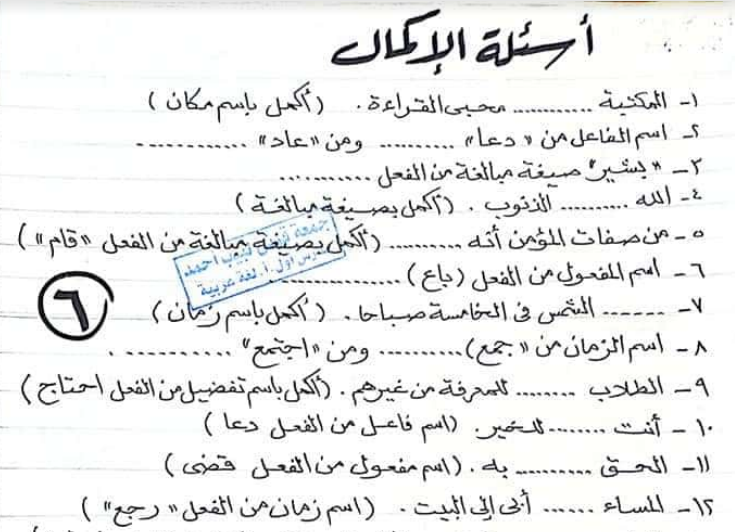 أسئلة الإكمال
١- المكتبة ........... محبى القراءة . (أكمل باسم مكان)
٢- اسم الفاعل من «دعا» .......... ومن «عاد» ............
٣- "بشير" صيغة مبالغة من الفعل ............
٤- الله .......... الذنوب . (أكمل بصيغة مبالغة)
٥- من صفات المؤمن أنه .......... (أكمل بصيغة مبالغة من الفعل «قام»)
٦- اسم المفعول من الفعل (باع) ................
٧- ....... الشمس فى الخامسة صباحا . (أكمل باسم زمان)
٨- اسم الزمان من «جمع» .......... ومن «اجتمع" ........... .
٩- الطلاب ........ للمعرفة من غيرهم . (أكمل باسم تفضيل من الفعل احتاج)
١٠- أنت ........ للخير . (اسم فاعل من الفعل دعا)
١١- الحق .......... به . (اسم مفعول من الفعل قضى)
١٢- المساء ...... أبى إلى البيت . (اسم زمان من الفعل «رجع")
جمعة قرنى لبيب أحمد
مدرس أول أ. لغة عربية
٦